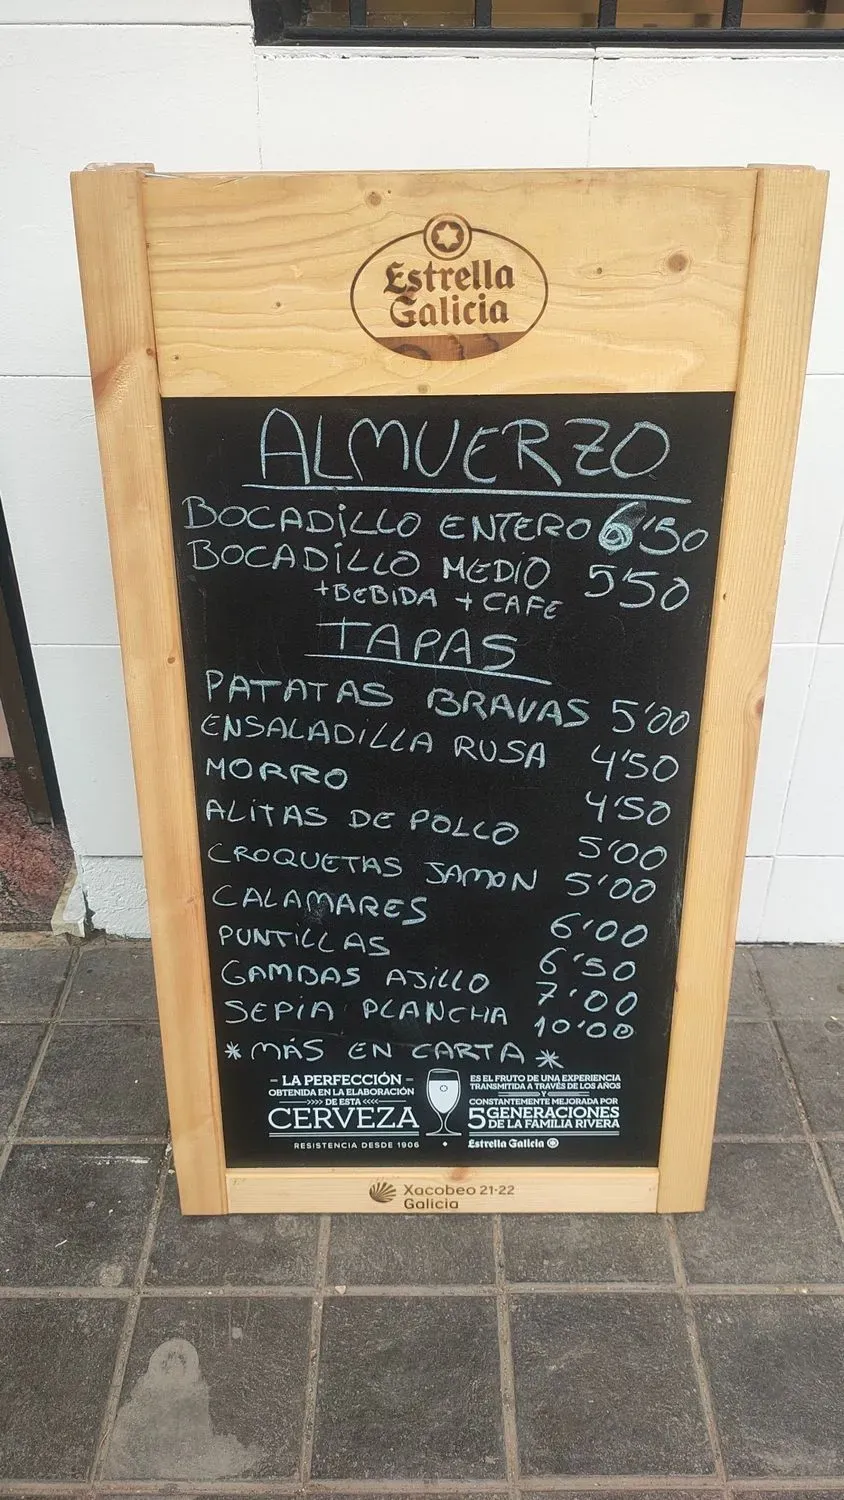 Estrella
Galicia
ALMUERZO
BOCADiLLO ENTERO 6'50
BOCADiLLO MEDIO 5'50
+BEBIDA + CAFE
TAPAS
PATATAS BRAVAS 5'00
ENSALADILLA RUSA 4'50
MORRO 4'50
ALITAS DE POLLO 5'00
CROQUETAS JAMON 5'00
CALAMARES 6'00
PUNTILLAS 6'50
GAMBAS AJILLO 7'00
SEPIA PLANCHA 10'00
* MÁS EN CARTA *
- LA PERFECCIÓN -
OBTENIDA EN LA ELABORACIÓN
>>>> DE ESTA <<<<
CERVEZA
RESISTENCIA DESDE 1906
ES EL FRUTO DE UNA EXPERIENCIA
TRANSMITIDA A TRAVÉS DE LOS AÑOS
Y
CONSTANTEMENTE MEJORADA POR
5 GENERACIONES
DE LA FAMILIA RIVERA
Estrella Galicia
Xacobeo 21·22
Galicia